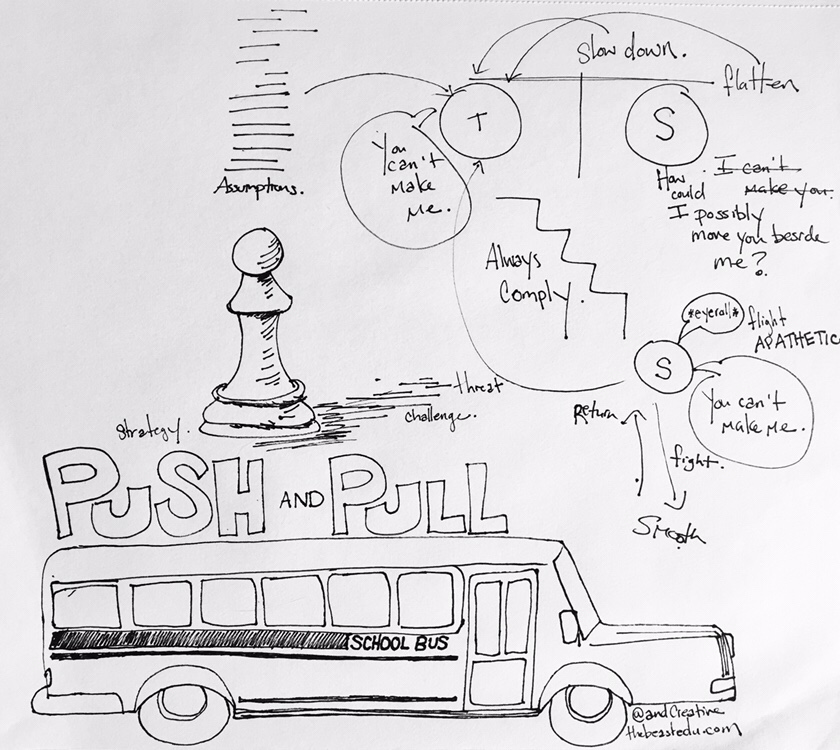 Slow down.
flatten
T
S
You
can't
make
me.
Assumptions.
How
could
I can't
make you.
I possibly
move you beside
me?
Always
Comply.
*eyeroll*
flight
APATHETIC
S
You can't
make me.
threat
challenge.
strategy.
Return
fight.
Smooth
PUSH AND PULL
SCHOOL BUS
@andCreative
thebeastedu.com